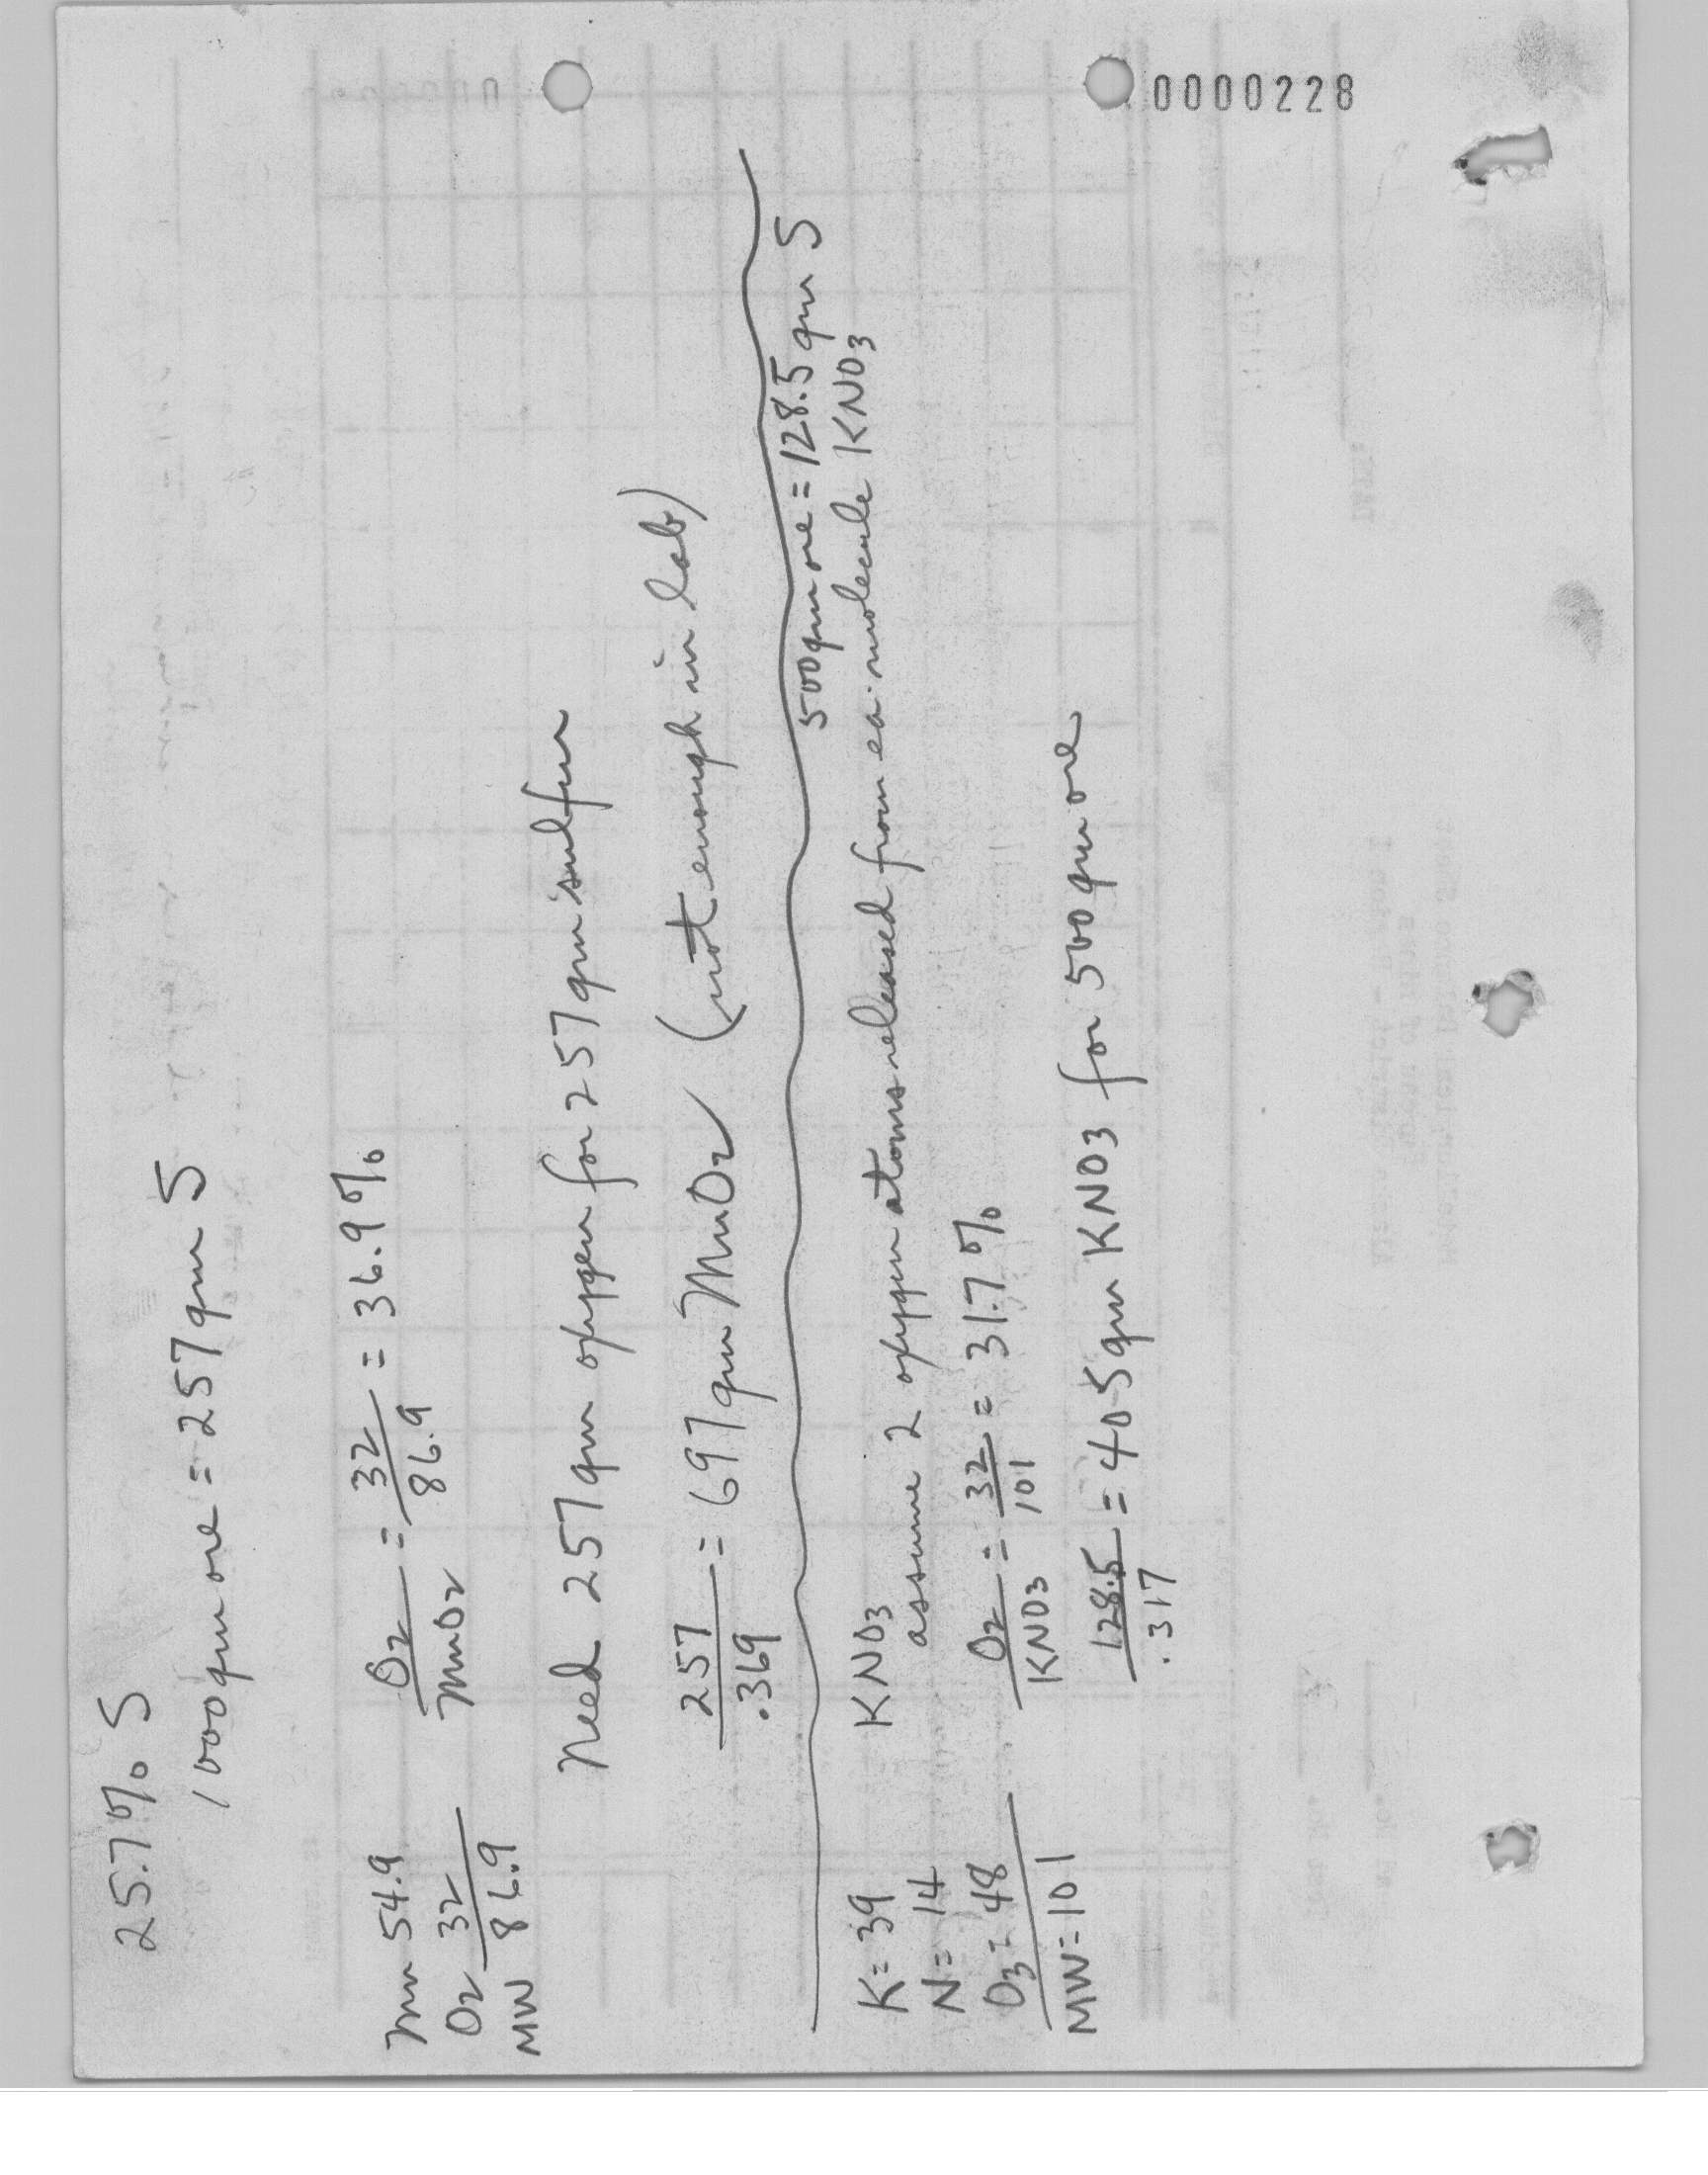 0000228
25.7% S
1000 gm ore = 257 gm S
Mn 54.9
O2 32
MW 86.9
O2 / MnO2 = 32 / 86.9 = 36.9%
Need 257 gm oxygen for 257 gm sulfur
257 / .369 = 697 gm MnO2 (not enough in lab)
500 gm ore = 128.5 gm S
KNO3
assume 2 oxygen atoms released from ea. molecule KNO3
K = 39
N = 14
O3 = 48
MW = 101
O2 / KNO3 = 32 / 101 = 31.7%
128.5 / .317 = 405 gm KNO3 for 500 gm ore